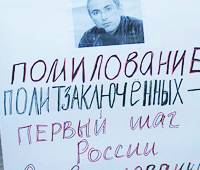 ПОМИЛОВАНИЕ
ПОЛИТЗАКЛЮЧЕННЫХ –
ПЕРВЫЙ ШАГ
РОССИИ